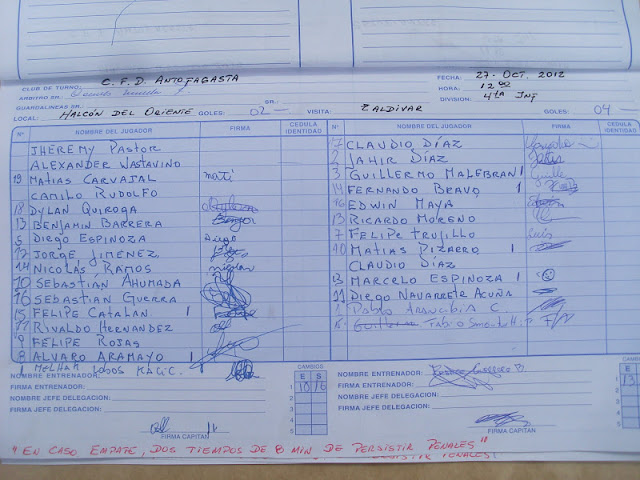 CLUB DE TURNO: C. F. D ANTOFAGASTA FECHA: 27- OCT. 2012
ARBITRO SR. HORA: 12 00
GUARDALINEAS SR. SR. DIVISION: 4ta INF
LOCAL: HALCÓN DEL ORIENTE GOLES: 02 - VISITA: ZALDIVAR GOLES: 04 -
Nº NOMBRE DEL JUGADOR FIRMA CEDULA IDENTIDAD Nº NOMBRE DEL JUGADOR FIRMA CEDULA IDENTIDAD
JHEREMY PASTOR 17 CLAUDIO DÍAZ
ALEXANDER WASTAVINO 2 JAHIR DÍAZ
19 MATIAS CARVAJAL mati 3 GUILLERMO MALEBRAN 1
CAMILO RUDOLFO 14 FERNANDO BRAVO 1
18 DYLAN QUIROGA 16 EDWIN MAYA
13 BENJAMIN BARRERA 13 RICARDO MORENO
5 DIEGO ESPINOZA Diego 7 FELIPE TRUJILLO Luis
12 JORGE JIMÉNEZ 10 MATIAS PIZARRO 1
14 NICOLÁS RAMOS nicolas CLAUDIO DÍAZ
10 SEBASTIAN AHUMADA 13 MARCELO ESPINOZA 1
16 SEBASTIAN GUERRA 11 DIEGO NAVARRETE ACUÑA
15 FELIPE CATALAN 1 Pablo Arancibia C.
17 RIVALDO HERNANDEZ Fabio
9 FELIPE ROJAS
8 ALVARO ARAMAYO 1
1
NOMBRE ENTRENADOR: CAMBIOS NOMBRE ENTRENADOR:
FIRMA ENTRENADOR: E S FIRMA ENTRENADOR:
NOMBRE JEFE DELEGACION: 1 10 16 NOMBRE JEFE DELEGACION:
FIRMA JEFE DELEGACION: 2 FIRMA JEFE DELEGACION:
3
4
5
FIRMA CAPITAN FIRMA CAPITAN
"EN CASO EMPATE, DOS TIEMPOS DE 8 MIN DE PERSISTIR PENALES"
PENALES